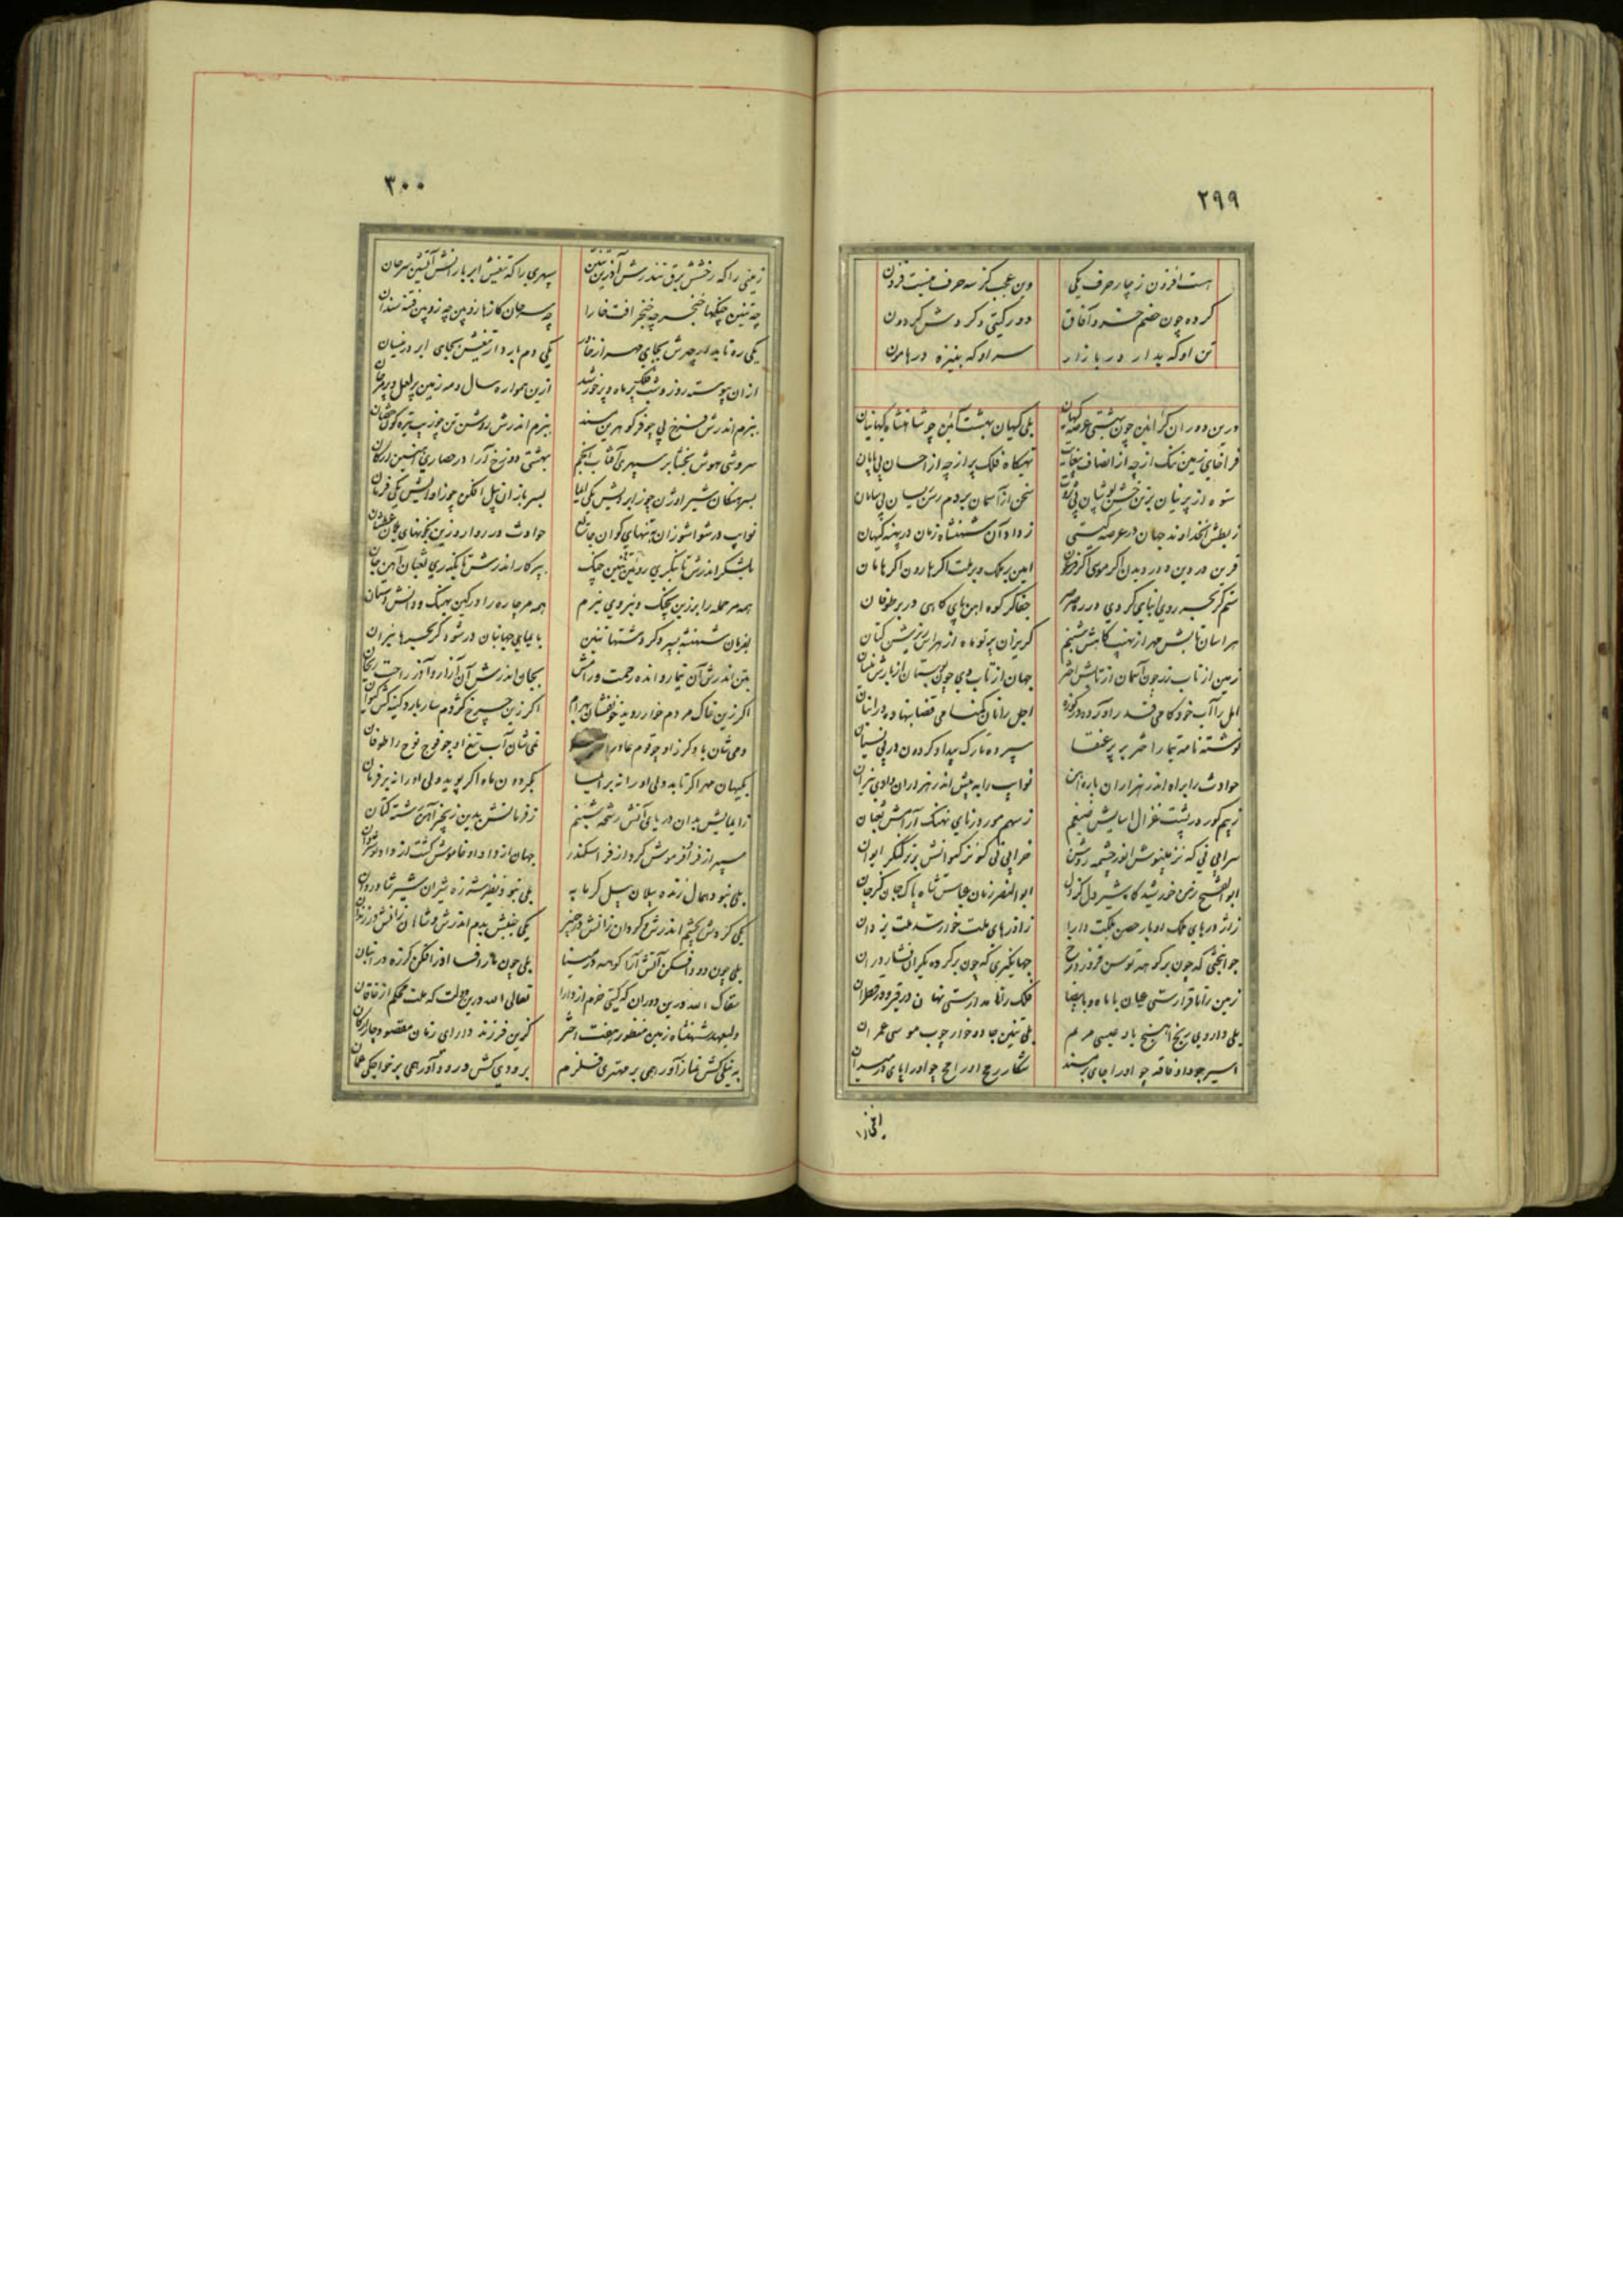 ۲۹۹
هست افزون ز چار حرف یکی وین عجب کز سه حرف نیست فزون
کرده چون خصم خسرو آفاق دور گیتی و گردش گردون
تن او که بدار در بازار سر او که بنیزه در هامون
درین دوران کز آیین چون بهشتی عرصه گیهان بلی گیهان بهشت آیین چو شاهنشاه گیهانبان
فراخای زمین تنگ از چه از انصاف بیغایت تهیگاه فلک پر از چه از احسان بی پایان
ستوه از پرنیان بر تن خشن پوشان بی سخن از آسمان بر دم رسن بی سامان
ز بطش آن خداوند جهان در عرصه گیتی ز داد آن شهنشاه زمان در پهنه گیهان
قرین در دین و در دیدن اگر موسی اگر امین بر ملک و بر ملت اگر هارون اگر هامان
ستم گر بحر رویین پای کردی در ره صرصر جفا گر کوه آهن پای کاهی در بر طوفان
هراسان تابش مهر از نهیب کاهش شبنم گریزان پرتو ماه از هراس ریزش کتان
زمین از تاب چون آسمان از تابش اختر جهان از تاب وی چون بوستان از بارش نیسان
امل را آب خود کامی قدر آورده در کوزه اجل را نان ناکامی قضا بنهاده در انبان
نوشته نامه تیمار را شهپر بر پر عنقا سپرده تارک بیداد گردون در پی نسیان
حوادث را براه اندر هزاران باره آهن نوایب را به پیش اندر هزاران وادی نیران
ز بیم گور در پشت غزال آسایش ضیغم ز سهم مور در نای نهنگ آرامش ثعبان
سرایی نی که نز مینوش انور چشمه روشن خرابی نی که نز کیوانش برتر کنگر ایوان
ابوالفتح زمین خورشید گاه شیردل ابوالنصر زمان عباس شاه پاک جان
ز اژدرهای ملک اوبار حصن مملکت دارا ز اژدرهای ملت خوار سد ملت یزدان
جوانبختی که چون بر کوهه توسن فروزد رخ جهانگیری که چون بر گرده یکران فشارد ران
زمین را تا قرارستی عیان با ماه و با بیضا فلک را تا مدارستی نهان در قیر و در قطران
بلی داروی رنج آهنج باد عیسی مریم بلی تنین جادو خوار چوب موسی عمران
اسیر جود او فاقه چو او را جای بر مسند شکار رمح او رامح چو او را پای در میدان
۳۰۰
زمینی را که رخشش برق تندر آذرین تنین سپهری را که تیغش ابر بارانش آتشین مرجان
چه تنین چنگها خنجر چه خنجر آفت خارا چه مرجان کازها زوپین چه زوپین فتنه سندان
یکی ره تابد ار چهرش بجای مهر از خاور یکی دم بارد ار تیغش بجای ابر در نیسان
از آن پیوسته روز و شب فلک پر ماه و پر خورشید ازین همواره سال و مه زمین پر لعل و پر مرجان
ببزم اندرش فرخ پی چو فر گوهرین مسند برزم اندرش روشن تن چو زیب تیره گون خفتان
سروشی هوش بخشا بر سپهری آفتاب انجم بهشتی دوزخ آرا در حصاری آهنین ارکان
بسر هنگان شیر اوژن چو زابرویش یکی ایما بسربازان پیل افکن چو ز آوایش یکی فرمان
نوایب در شواشو زان بتنهای گوان حوادث در روارو زین
بلشکر اندرش تا بنگری رویین تنین چنگ به پیکار اندرش تا بنگری ثعبان آهن جان
همه مر حمله را برزین بچنگ و نیروی نیرم همه مر چاره را گرگین بهنگ و دانش دستان
بفرمان شهنشه بسپرد گر دشتها تنین بایمای جهانبان در شود گر بحرها نیران
بتن اندرش آن تیمار و انده رحمت و رامش بجان اندرش آن آزار و آذر راحت و ریحان
اگر زین خاک مردم خوار روید خونفشان بهرام اگر زین چرخ کژدم سار بارد کینه کش کیوان
دمی شان باد گرز او چو قوم عاد را صرصر نمی شان آب تیغ او چو فوج نوح را طوفان
بگیهان مهر اگر تابد ولی او را نه بر ایما بگردون ماه اگر پوید ولی او را نه بر فرمان
ز ایمایش بدان دریای آتش رشحه شبنم ز فرمانش بدین زنجیر آهن رشته کتان
سپهر از فر او فرموش کرد از فر اسکندر جهان از داد او خاموش گشت از داد نوشروان
بلی نبود همال زنده پیلان پیل گرمابه بلی نبود نظیر شرزه شیران شیر شادروان
یکی گردش بچشم اندرش و گردان زانش در چنبر یکی جنبش بدم اندرش و شاهان زانش در زندان
بلی چون دود افکن آتش آرا کوهه در سینا بلی چون مار افسا اژدر افکن گرزه در انبان
تعالی الله درین دوران که گیتی خرم از دارا تعالی الله درین دولت که ملت محکم از خاقان
ولیعهد شهنشاه زمین منظور هفت اختر گزین فرزند دارای زمان مقصود چار ارکان
به نیلی کش نماز آور همی بر مهتری قلزم برودی کش درود آور همی بر خواجگی عمان